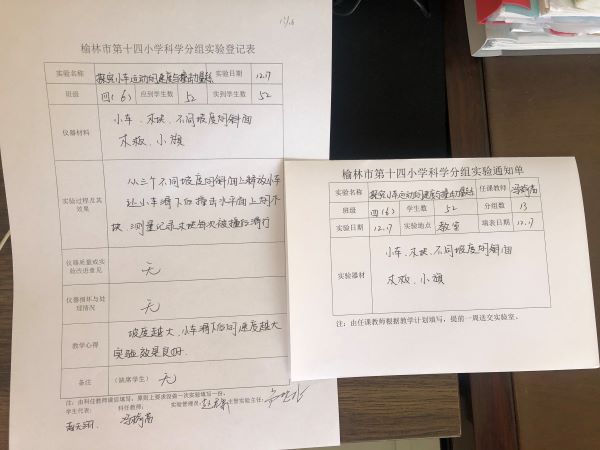 榆林市第十四小学科学分组实验登记表
实验名称 探究小车运动的速度与撞动 实验日期 12.17
班级 四(6) 应到学生数 52 实到学生数 52
仪器材料 小车、木块、不同坡度的斜面
木板、小旗
实验过程及其效果 从三个不同坡度的斜面上释放小车
让小车滑下后撞击水平面上的木
块 测量记录木块每次被撞后滑行
仪器质量或实验改进意见 无
仪器损坏与处理情况 无
教学心得 坡度越大、小车滑下后的速度越大
实验效果良好.
备注 (缺席学生) 无
注：由科任教师课后填写，原则上要求没做一次实验填写一份。
学生代表： 科任教师： 实验管理员： 主管实验主任：
榆林市第十四小学科学分组实验通知单
实验名称 探究小车运动的速度与撞动 任课教师
班级 四(6) 学生数 52 分组数 13
实验日期 12.17 实验地点 教室 填表日期 12.17
实验器材 小车、木块、不同坡度的斜面
木板、小旗
注：由任课教师根据教学计划填写，提前一周送交实验室。